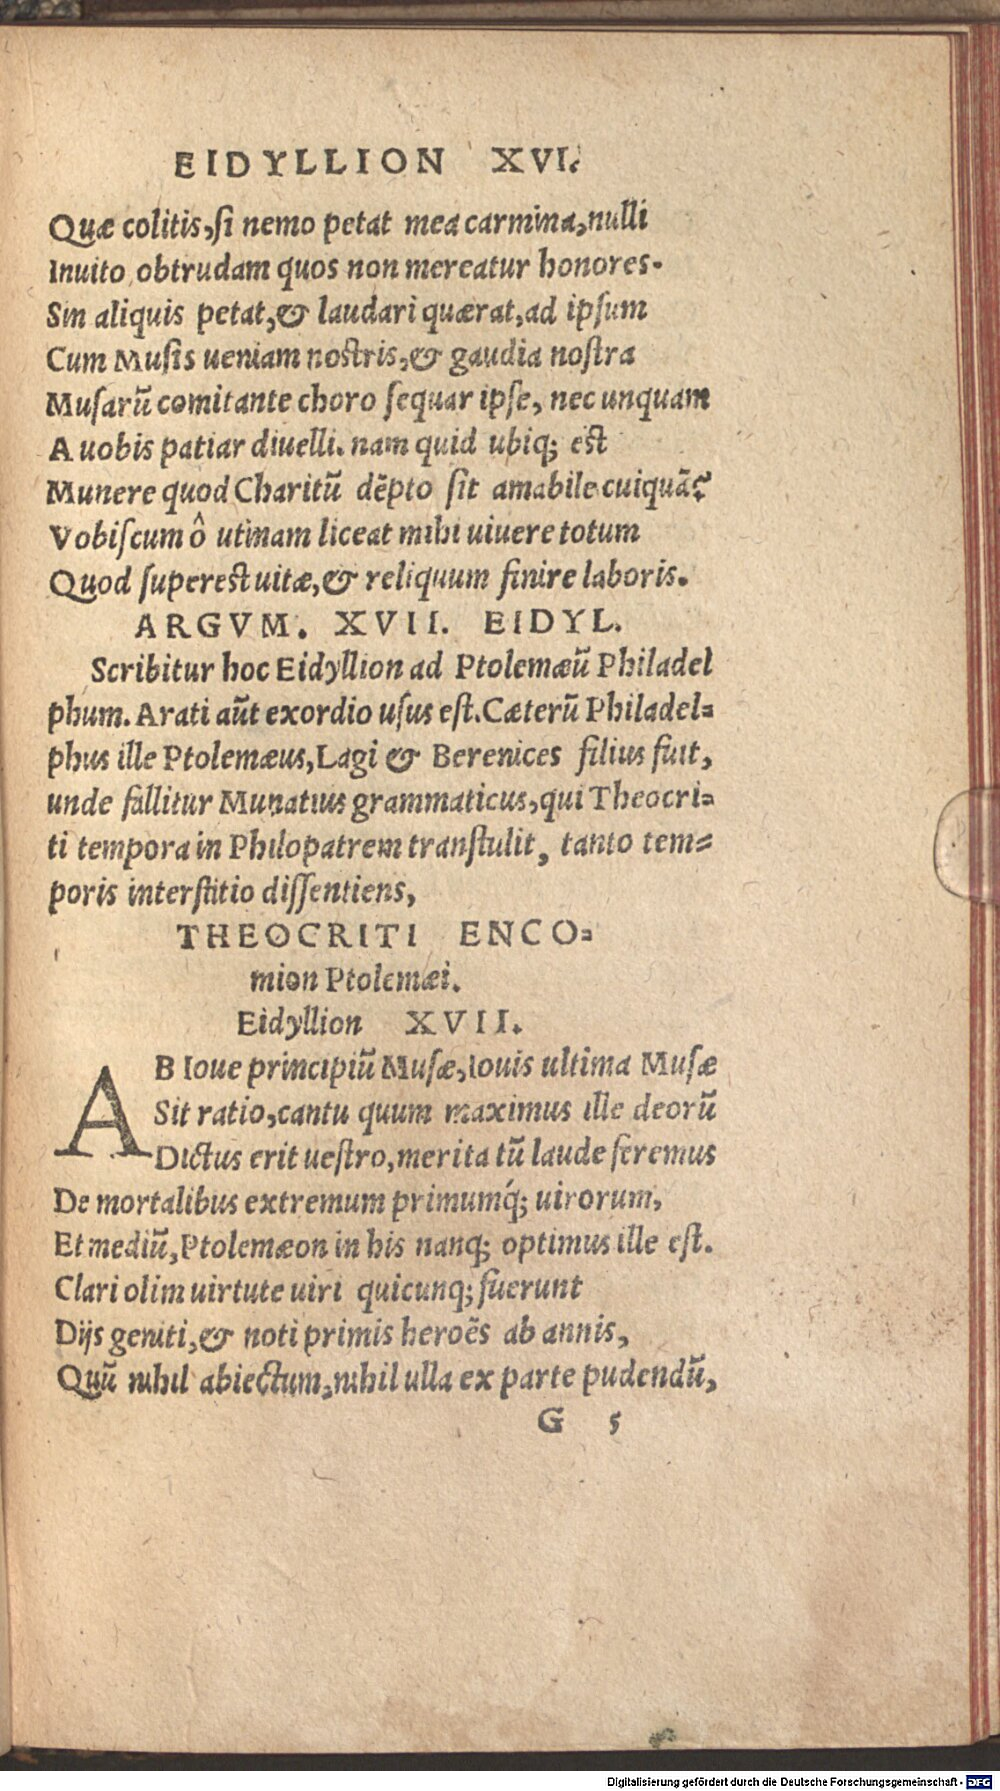 EIDYLLION XVI.
Quæ colitis, si nemo petat mea carmina, nulli
Inuito obtrudam quos non mereatur honores.
Sin aliquis petat, & laudari quærat, ad ipsum
Cum Musis ueniam nostris, & gaudia nostra
Musarū comitante choro sequar ipse, nec unquam
A uobis patiar diuelli. nam quid ubiq; est
Munere quod Charitū dēpto sit amabile cuiquā?
Vobiscum ô utinam liceat mihi uiuere totum
Quod superest uitæ, & reliquum finire laboris.
ARGVM. XVII. EIDYL.
Scribitur hoc Eidyllion ad Ptolemæū Philadel
phum. Arati aūt exordio usus est. Cæterū Philadel=
phus ille Ptolemæus, Lagi & Berenices filius fuit,
unde fallitur Munatius grammaticus, qui Theocri=
ti tempora in Philopatrem transtulit, tanto tem=
poris interstitio dissentiens,
THEOCRITI ENCO=
mion Ptolemæi.
Eidyllion XVII.
AB Ioue principiū Musæ, Iouis ultima Musæ
Sit ratio, cantu quum maximus ille deorū
Dictus erit uestro, merita tū laude feremus
De mortalibus extremum primumq́; uirorum,
Et mediū, Ptolemæon in his nanq; optimus ille est.
Clari olim uirtute uiri quicunq; fuerunt
Dijs geniti, & noti primis heroēs ab annis,
Quū nihil abiectum, nihil ulla ex parte pudendū,
G 5
Digitalisierung gefördert durch die Deutsche Forschungsgemeinschaft - DFG